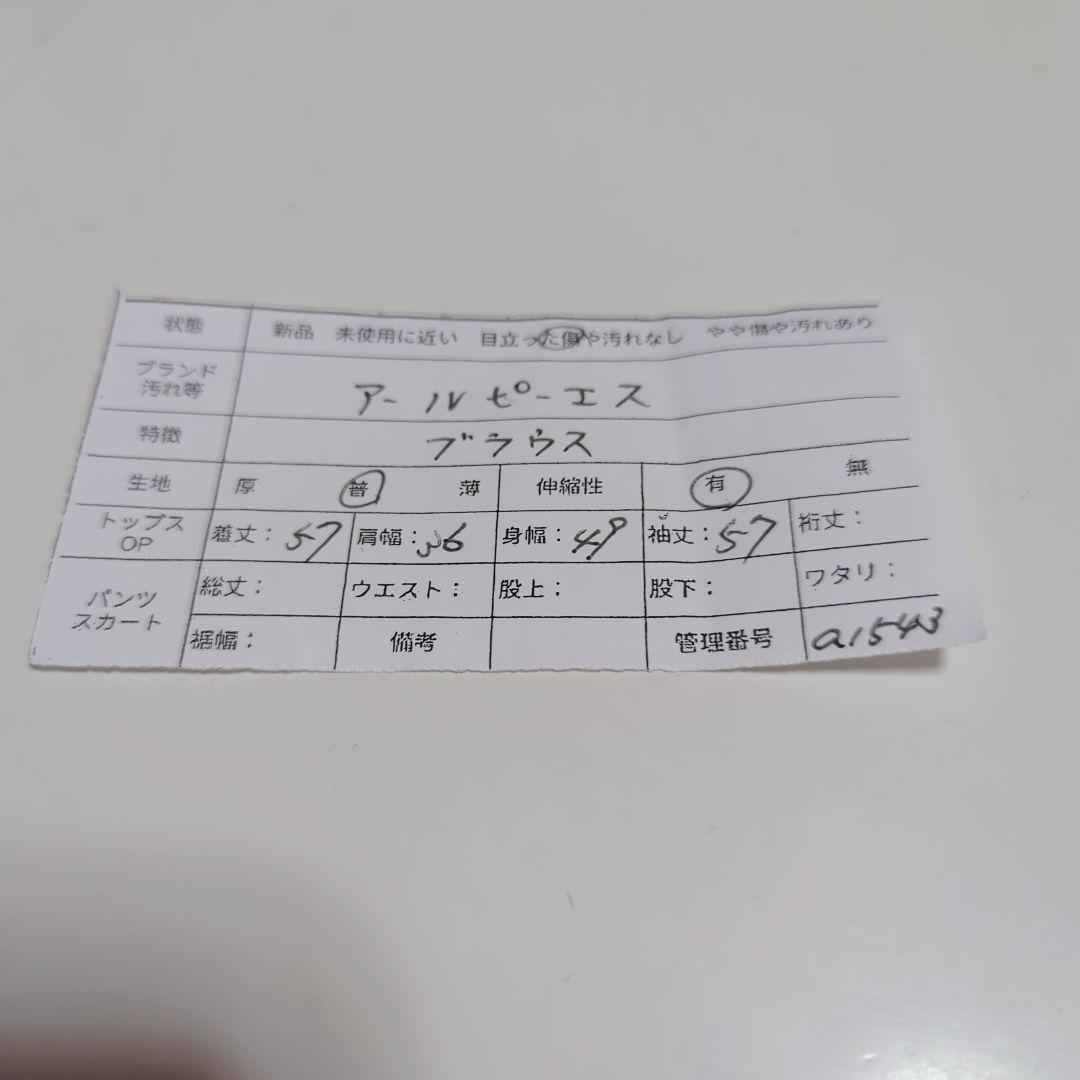 状態 新品 未使用に近い 目立った傷や汚れなし やや傷や汚れあり
ブランド
汚れ等 アールピーエス
特徴 ブラウス
生地 厚 普 薄 伸縮性 有 無
トップス
OP 着丈：57 肩幅：36 身幅：49 袖丈：57 裄丈：
パンツ
スカート 総丈： ウエスト： 股上： 股下： ワタリ：
裾幅： 備考 管理番号 a1543